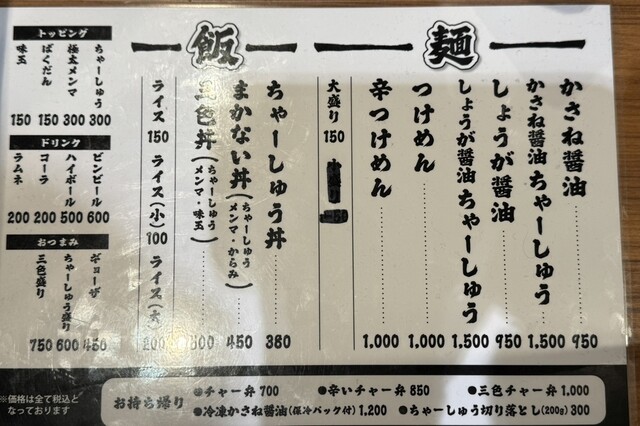 麺
かさね醤油 950
かさね醤油ちゃーしゅう 1,500
しょうが醤油 950
しょうが醤油ちゃーしゅう 1,500
つけめん 1,000
辛つけめん 1,000
大盛り 150
飯
ちゃーしゅう丼 360
まかない丼(ちゃーしゅう メンマ・からみ) 450
三色丼(ちゃーしゅう メンマ・味玉)
ライス 150 ライス(小) 100 ライス(大) 200
トッピング
ちゃーしゅう 300
極太メンマ 300
ばくだん 150
味玉 150
ドリンク
ビンビール 600
ハイボール 500
コーラ 200
ラムネ 200
おつまみ
ギョーザ 450
ちゃーしゅう盛り 600
三色盛り 750
※価格は全て税込と
なっております
お持ち帰り
●チャー弁 700 ●辛いチャー弁 850 ●三色チャー弁 1,000
●冷凍かさね醤油(保冷パック付) 1,200 ●ちゃーしゅう切り落とし(200g) 300